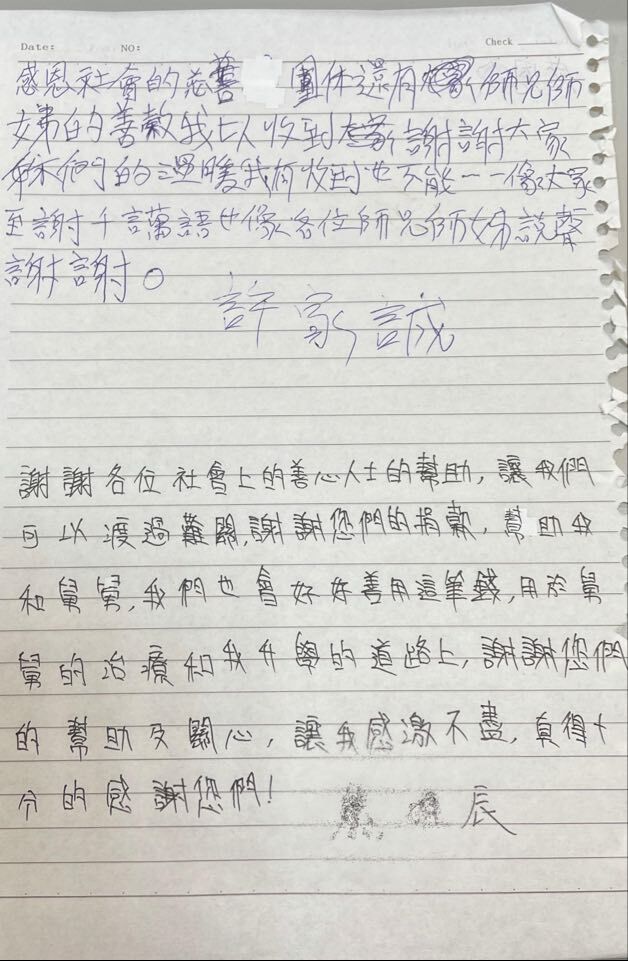 Date: NO: Check
感恩社會的慈善 團体還有大家師兄師
姊的善款我以收到大家謝謝大家
你們的温暖我有收到也不能一一像大家
至謝千言萬語也像各位師兄師姊說聲
謝謝。
許家誠
謝謝各位社會上的善心人士的幫助,讓我們
可以渡過難關,謝謝您們的捐款,幫助我
和舅舅,我們也會好好善用這筆錢,用於舅
舅的治療和我升學的道路上,謝謝您們
的幫助及關心,讓我感激不盡,真得十
分的感謝您們!
辰